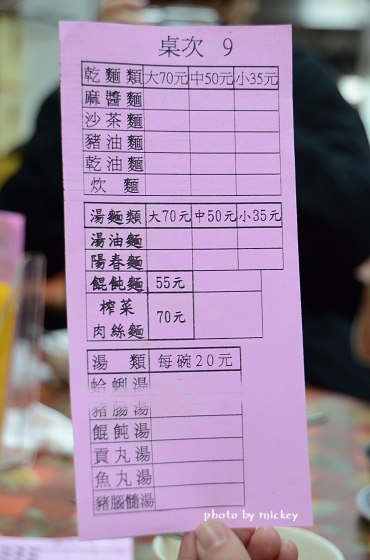 桌次 9
乾麵類 大70元 中50元 小35元
麻醬麵
沙茶麵
豬油麵
乾油麵
炊 麵
湯麵類 大70元 中50元 小35元
湯油麵
陽春麵
餛飩麵 55元
榨菜
肉絲麵 70元
湯 類 每碗20元
蛤蜊湯
豬腸湯
餛飩湯
貢丸湯
魚丸湯
豬腦髓湯
photo by mickey